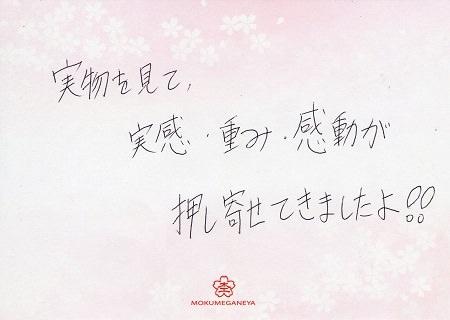 実物を見て、
実感・重み・感動が
押し寄せてきましたよ!!
杢
MOKUMEGANEYA